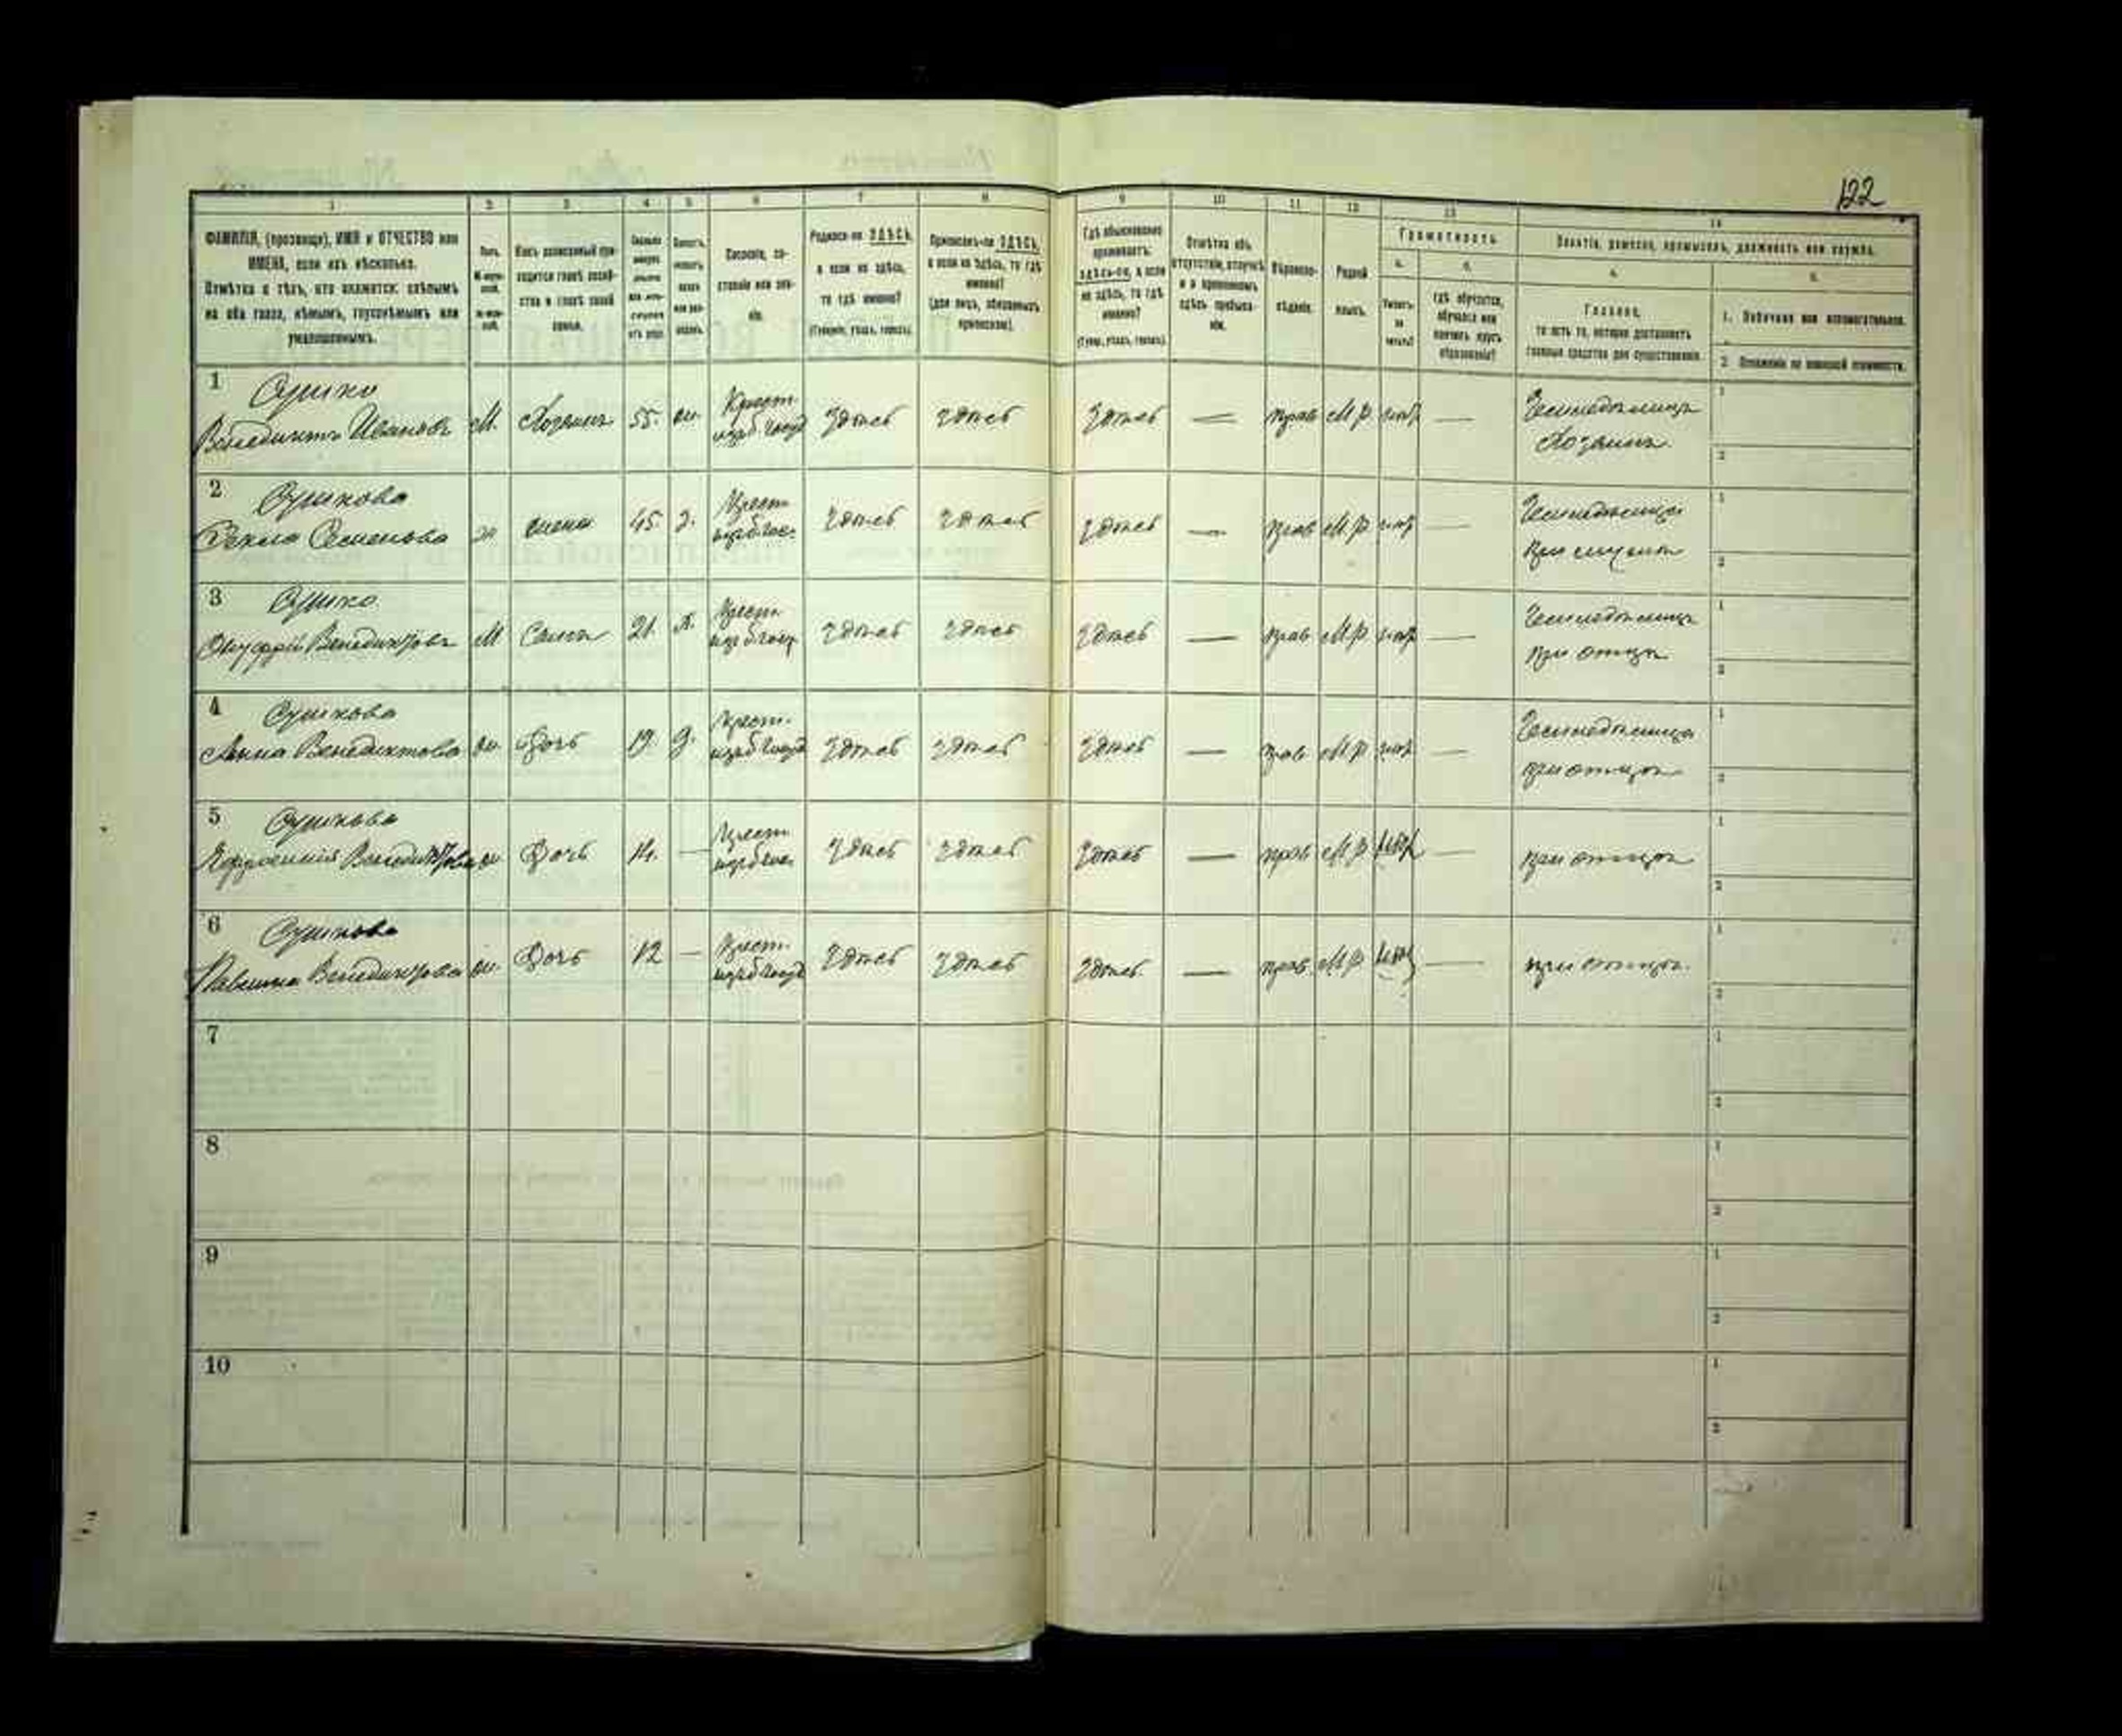 122
1 2 3 4 5 6 7 8 9 10 11 12 13 14
ФАМИЛІЯ, (прозвище), ИМЯ и ОТЧЕСТВО или
ИМЕНА, если ихъ нѣсколько.
Отмѣтка о тѣхъ, кто окажется: слѣпымъ
на оба глаза, нѣмымъ, глухонѣмымъ или
умалишеннымъ.
Полъ.
Какъ записанный при-
ходится главѣ хозяй-
ства и главѣ своей
семьи.
Сословіе, со-
стояніе или зва-
ніе.
Родился-ли ЗДѢСЬ,
а если не здѣсь,
то гдѣ именно?
(Губернія, уѣздъ, городъ).
Приписанъ-ли ЗДѢСЬ,
а если не здѣсь, то гдѣ
именно?
(для лицъ, обязанныхъ
припискою).
Гдѣ обыкновенно
проживаетъ:
здѣсь-ли, а если
не здѣсь, то гдѣ
именно?
(Губер., уѣздъ, городъ).
Отмѣтка объ
отсутствіи, отлучкѣ
и о временномъ
здѣсь пребыва-
ніи.
Вѣроиспо-
вѣданіе.
Родной
языкъ.
Грамотность
а. б.
Умѣетъ-
ли
читать?
Гдѣ обучается,
обучался или
кончилъ курсъ
образованія?
Занятіе, ремесло, промыселъ, должность или служба.
а. б.
Главное,
то есть то, которое доставляетъ
главныя средства для существованія.
1. Побочное или вспомогательное.
2. Положеніе по воинской повинности.
1 Сушко
Венедиктъ Ивановъ М. Хозяинъ 55. ж. Крест. здѣсь здѣсь здѣсь — прав М.р нѣт — Земледѣлецъ
Хозяинъ
1
2
2 Сушкова
Текла Семенова ж жена 45. з. Крест. здѣсь здѣсь здѣсь — прав М.р нѣт — Земледѣлица
при мужѣ
1
2
3 Сушко
Онуфрій Венедиктовъ М Сынъ 21. х. Крест. здѣсь здѣсь здѣсь — прав М.р нѣт — Земледѣлецъ
при отцѣ
1
2
4 Сушкова
Анна Венедиктова ж. Дочь 19. д. Крест. здѣсь здѣсь здѣсь — прав М.р нѣт — Земледѣлица
при отцѣ
1
2
5 Сушкова
Ефросинія Венедиктова ж Дочь 14. — Крест. здѣсь здѣсь здѣсь — прав М.р нѣт — при отцѣ
1
2
6 Сушкова
Венедиктова ж. Дочь 12 — Крест. здѣсь здѣсь здѣсь — прав М.р нѣт — при отцѣ.
1
2
7
1
2
8
1
2
9
1
2
10
1
2